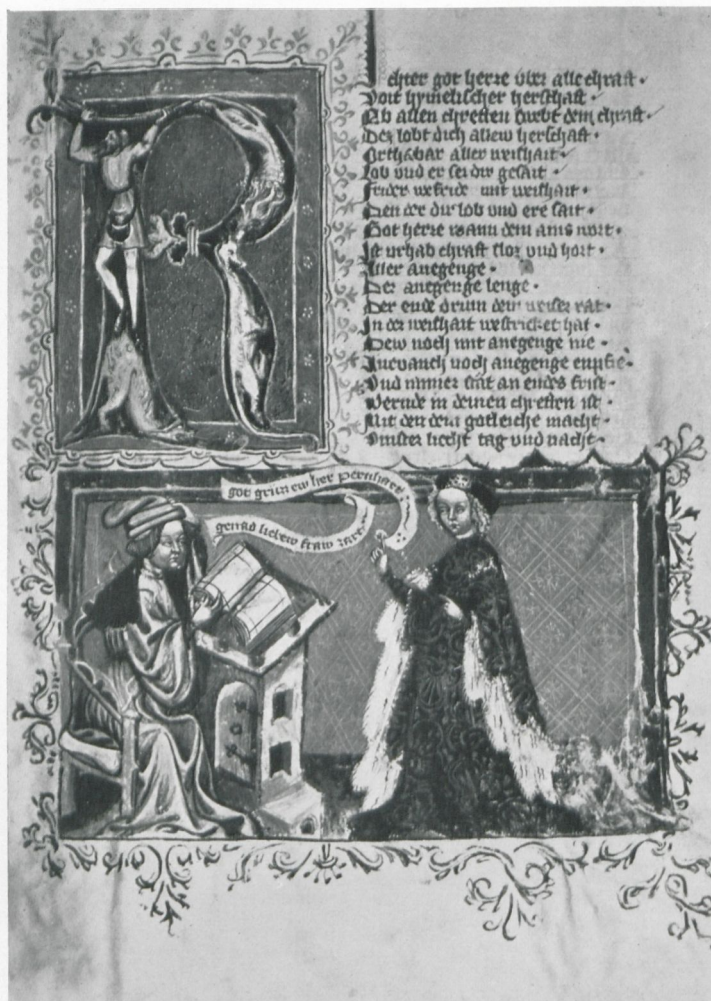 chter got herre vber alle chraft ·
Voit hymelischer herschaft
Ob allen chreften swebt dein chraft ·
Des lobt dich allew herschaft ·
Orthabær aller weishait
Lob vnd er sei dir gesait
weishait ·
Den der dir lob vnd ere sait ·
Got herre wann dein ains wort ·
Ist vrhab chraft vnd hort ·
Aller anegenge ·
Der anegenge lenge ·
Der ende drum dein weiser rat ·
In der weishait westricket hat ·
Dew noch mit anegenge nie ·
noch anegenge enpfie ·
Vnd nimmer an endes frist ·
Wernde in deinen chreften ist ·
Mit den dein gotleiche macht ·
vinster liecht tag vnd nacht ·
got grüz ew her pernhart
genad liebew fraw